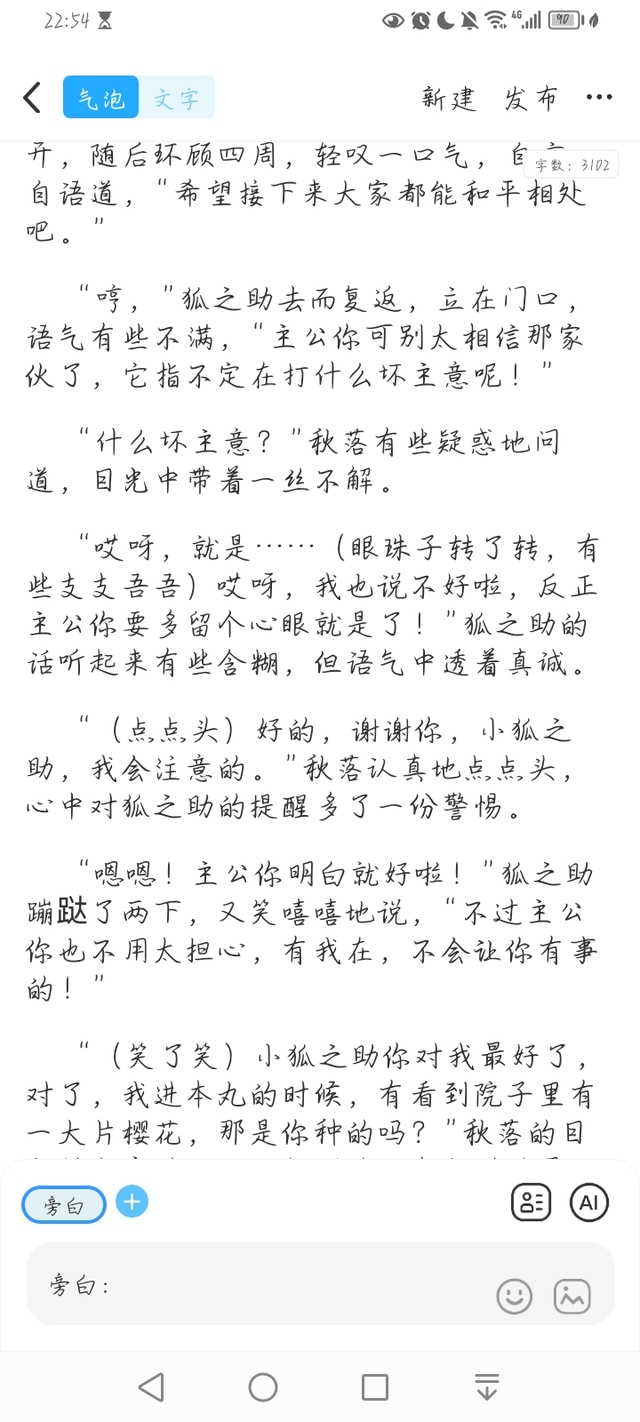 22:54
4G
90
气泡 文字 新建 发布
开，随后环顾四周，轻叹一口气，自言
字数：3102
自语道，“希望接下来大家都能和平相处
吧。”
“哼，”狐之助去而复返，立在门口，
语气有些不满，“主公你可别太相信那家
伙了，它指不定在打什么坏主意呢！”
“什么坏主意？”秋落有些疑惑地问
道，目光中带着一丝不解。
“哎呀，就是……（眼珠子转了转，有
些支支吾吾）哎呀，我也说不好啦，反正
主公你要多留个心眼就是了！”狐之助的
话听起来有些含糊，但语气中透着真诚。
“（点点头）好的，谢谢你，小狐之
助，我会注意的。”秋落认真地点点头，
心中对狐之助的提醒多了一份警惕。
“嗯嗯！主公你明白就好啦！”狐之助
蹦跶了两下，又笑嘻嘻地说，“不过主公
你也不用太担心，有我在，不会让你有事
的！”
“（笑了笑）小狐之助你对我最好了，
对了，我进本丸的时候，有看到院子里有
一大片樱花，那是你种的吗？”秋落的目
旁白
AI
旁白：